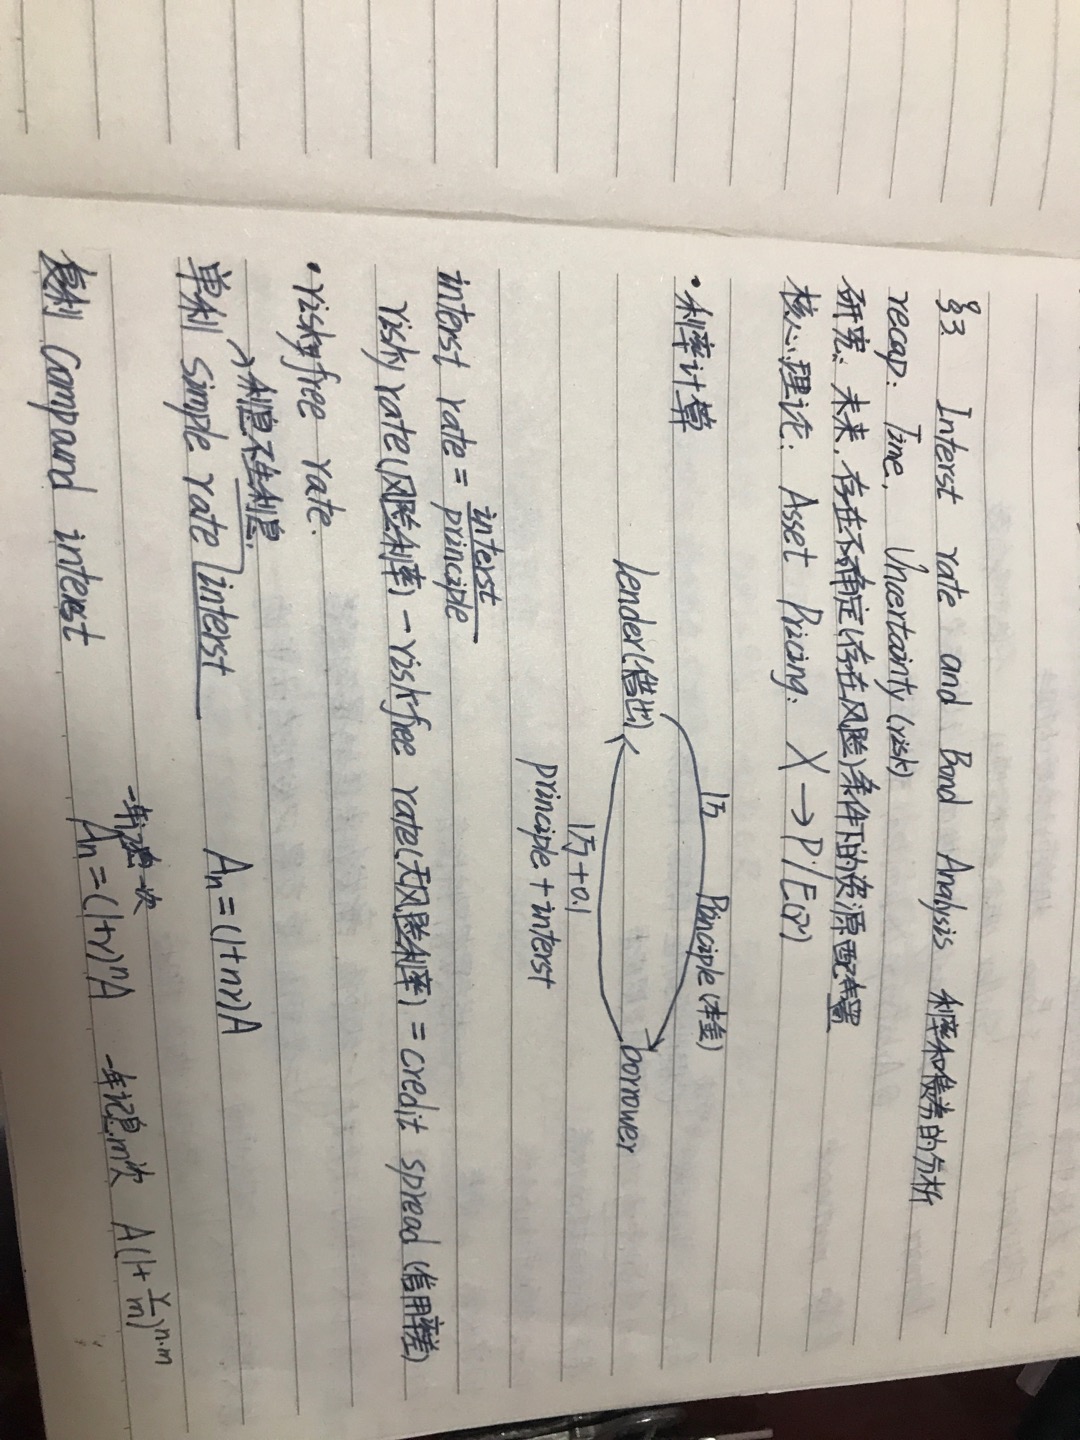 §3 Interst rate and Bond Analysis 利率和债券的分析
recap: Time, Uncertainty (risk)
研究: 未来, 存在不确定(存在风险)条件下的资源配置
核心理论: Asset Pricing: X → P / E(r)
• 利率计算
1万 Principle (本金)
lender(借出) borrower
1万+0.1
principle + interst
interst rate = interst / principle
risky rate(风险利率) - risk free rate(无风险利率) = credit spread (信用率差)
• risky free rate.
利息不生利息.
单利 simple rate / interst An = (1+nr)A
一年一次 一年记息m次
复利 Compand interst An = (1+r)^n A A(1+r/m)^n·m